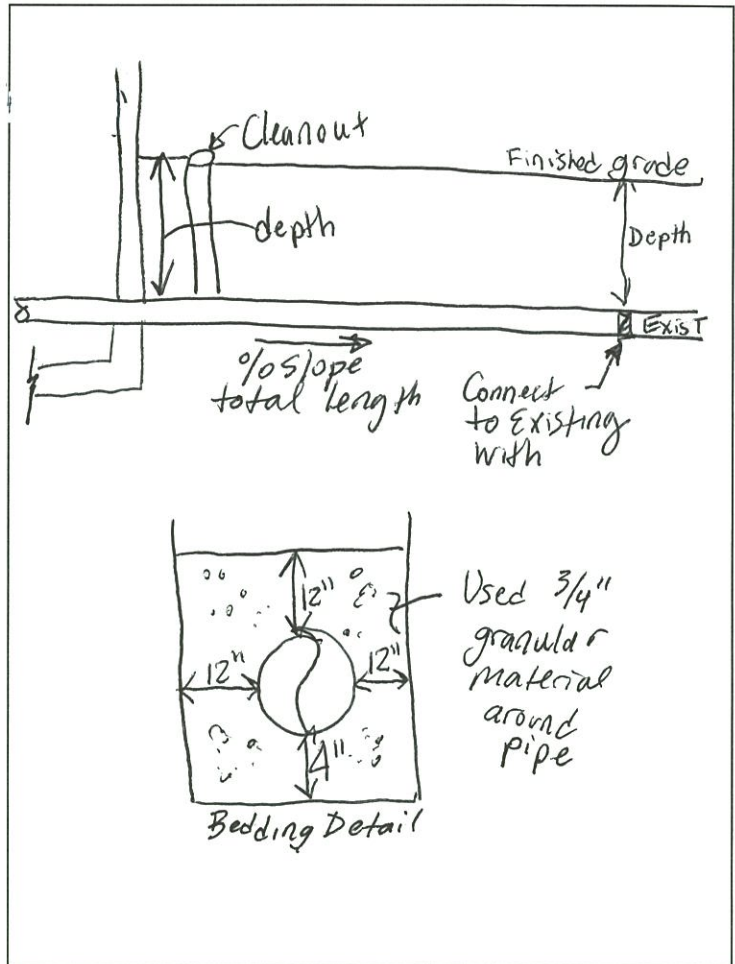 Cleanout
Finished grade
depth
Depth
EXIST
% slope
total length
Connect
to Existing
with
12"
12"
12"
4"
Used 3/4"
granular
material
around
pipe
Bedding Detail